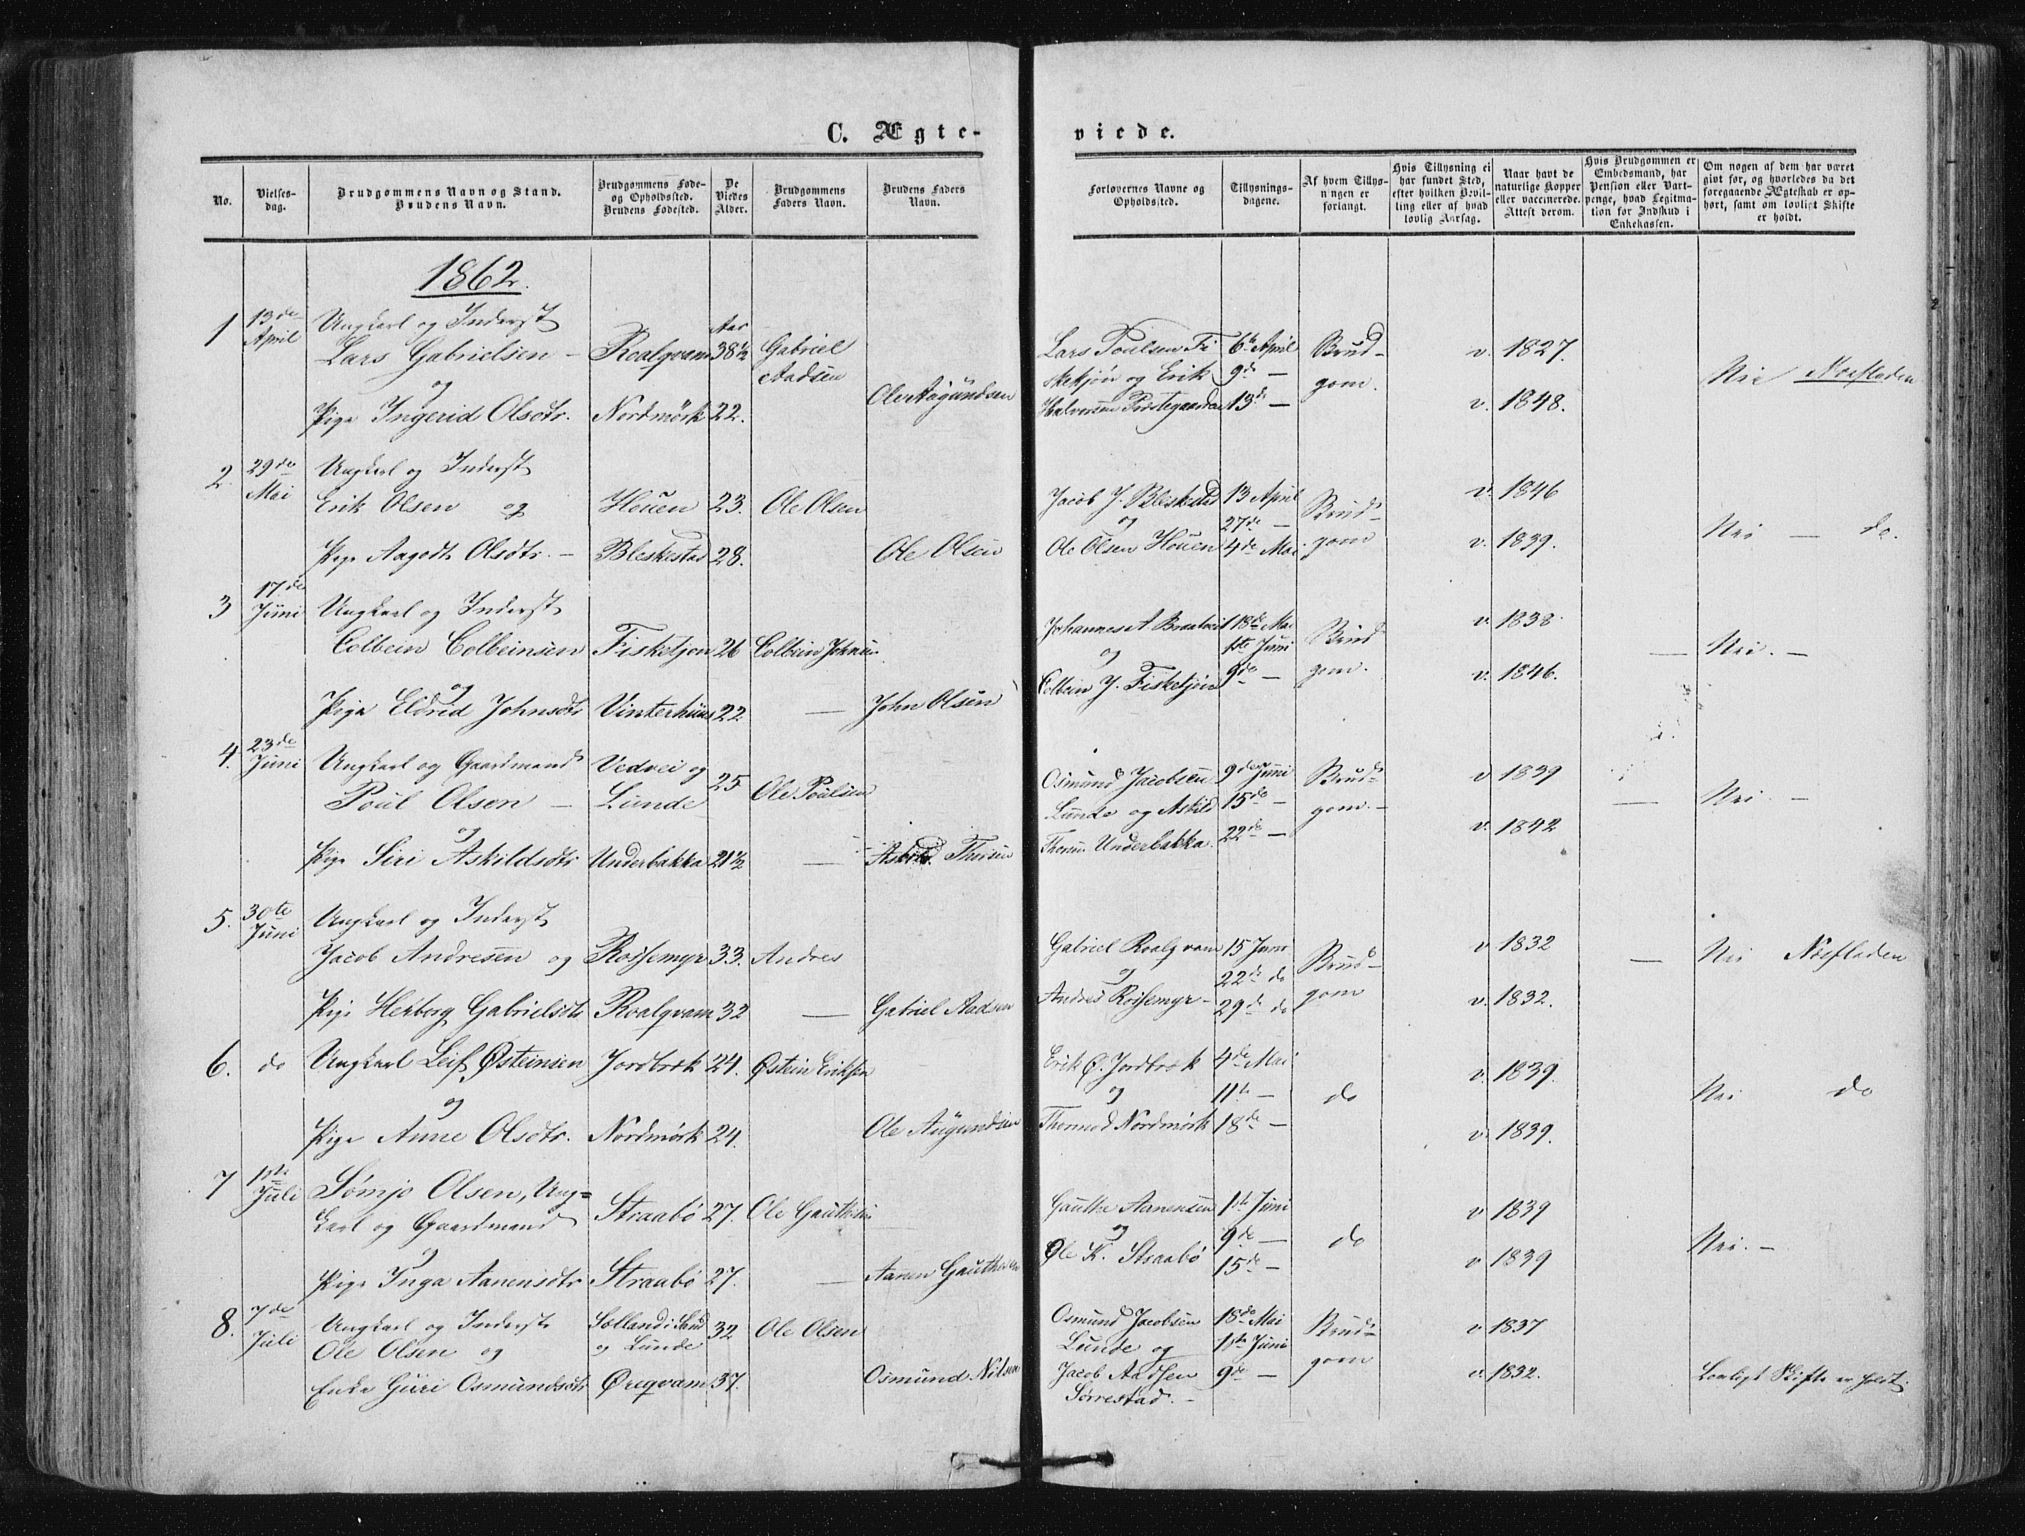 C. Ægte-
viede.
No.
Vielses-
dag.
Brudgommens Navn og Stand.
Brudens Navn.
Brudgommens Føde-
og Opholdssted.
Brudens Fødested.
De
Viedes
Alder.
Brudgommens
Faders Navn.
Brudens Faders
Navn.
Forlovernes Navne og
Opholdssted.
Tillysnings-
dagene.
Af hvem Tillys-
ningen er
forlangt.
Hvis Tillysning ei
har fundet Sted,
efter hvilken Bevil-
ling eller af hvad
lovlig Aarsag.
Naar havt de
naturlige Kopper
eller vaccinerede.
Attest derom.
Hvis Brudgommen er
Embedsmand, har
Pension eller Vart-
penge, hvad Legitima-
tion for Indskud i
Enkekassen.
Om nogen af dem har været
givt før, og hvorledes da det
foregaaende Ægteskab er op-
hørt, samt om lovligt Skifte
er holdt.
1862.
1 13de April
Ungkarl og Inderst
Lars Gabrielsen –
og
Pige Ingerid Olsdtr.
Roalqvam
Nordmørk
Aar
38½
22.
Gabriel
Aadsen
Ole Aagundsen
Lars Poulsen Fi
skekjön og Erik
Halvorsen Præstegaarden
6te April
9de –
13de –
Brud-
gom.
v. 1827.
v. 1848.
Nei Næsfladen
2. 29de Mai
Ungkarl og Inderst
Erik Olsen og
Pige Aagodt Olsdtr. –
Houen
Bleskestad
23.
28.
Ole Olsen
Ole Olsen
Jacob J. Bleskestad
og
Ole Olsen Houen
13 April
27de –
4de Mai
Brud-
gom
v. 1846
v. 1839.
Nei – do.
3 17de Juni
Ungkarl og Inderst
Colbein Colbeinsen
og
Pige Eldrid Johnsdtr
Fisketjon
Vinterhuus
26
22
Colbein Johns.
–
John Olsen
Johannes A
og
Colbein J. Fisketjön
18de Mai
1ste Juni
9de –
Brud
gom.
v. 1838.
v. 1846.
– Nei. –
4. 23de Juni
Ungkarl og Gaardmand
Poul Olsen –
og
Pige Siri Askildsdtr
Vedvei og
Lunde
Underbakka
25
21½
Ole Poulsen
–
Askild Thorsen
Osmund Jacobsen
Lunde og Askild
Thorsen Underbakka.
9de Juni
15de –
22de –
Brud-
gom. –
v 1839
v. 1842
– Nei. –
5. 30te Juni
Ungkarl og Inderst
Jacob Andresen og
Pige Herborg Gabrielsdtr
Rossemyr
Roalqvam
33.
32
Andres
–
Gabriel Aadsen
Gabriel Roalqvam
og
Andres Rossemyr –
15 Juni
22de do
29de do
Brud-
gom
v. 1832
v. 1832.
– Nei Næsfladen
6. do
Ungkarl Leif Østeinsen
og
Pige Anne Olsdtr.
Jordbrek
Nordmørk
24.
24.
Østein Eriksen
Ole Augundsen
Erik Ø. Jordbræk
og
Thormod Nordmørk
4de Mai
11te –
18de –
do
v. 1839.
v. 1839.
Nei do
7 1ste Juli
Sömjo Olsen, Ung-
karl og Gaardmand
og
Pige Inga Aanensdtr
Straabö
Straabö
27.
27.
Ole Gauthesen
–
Aanen Gauthesen
Gauthe Aanensen
og
Ole K. Straabö
1ste Juni
9de –
15de –
do
v 1839
v 1839
Nei. –
8. 7de Juli
Ungkarl og Inderst
Ole Olsen og
Enke Guri Osmundsdtr
Sælland i Sand
og Lunde
Øreqvam
32
37.
Ole Olsen
Osmund Nilsen
Osmund Jacobsen
Lunde og
Jacob Aadsen
Sørrestad. –
18de Mai
1ste Juni
9de –
Brud-
gom
v 1837
v. 1832.
Lovligt Skifte er holdt.